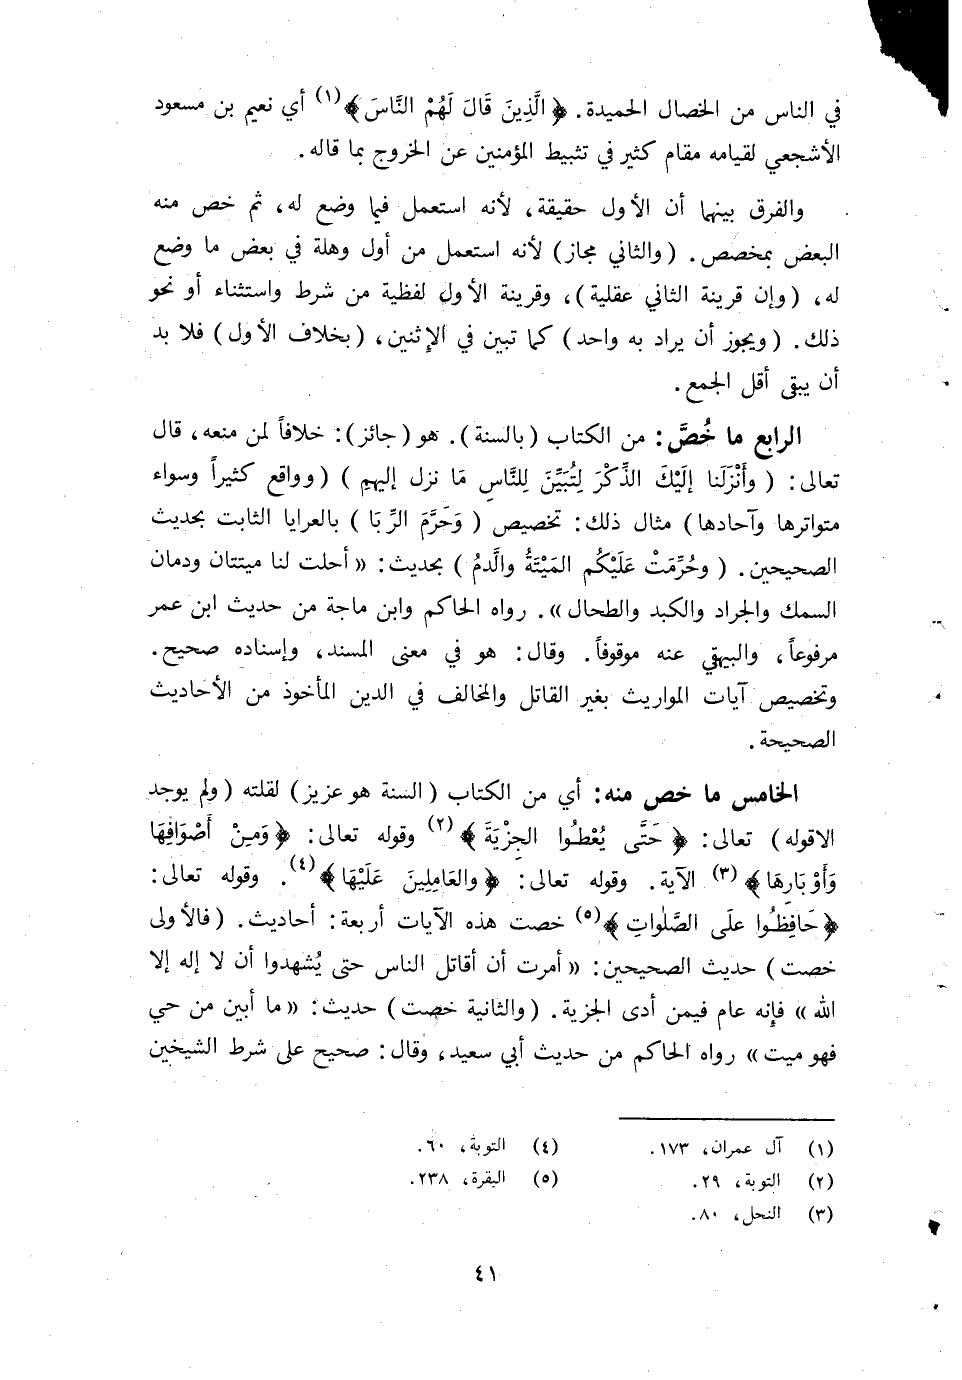 في الناس من الخصال الحميدة. ﴿الَّذِينَ قَالَ لَهُمْ النَّاسَ﴾(١) أي نعيم بن مسعود
الأشجعي لقيامه مقام كثير في تثبيط المؤمنين عن الخروج بما قاله.
والفرق بينهما أن الأول حقيقة، لأنه استعمل فيما وضع له، ثم خص منه
البعض بمخصص. (والثاني مجاز) لأنه استعمل من أول وهلة في بعض ما وضع
له، (وإن قرينة الثاني عقلية)، وقرينة الأول لفظية من شرط واستثناء أو نحو
ذلك. (ويجوز أن يراد به واحد) كما تبين في الإثنين، (بخلاف الأول) فلا بد
أن يبقى أقل الجمع.
الرابع ما خُصَّ: من الكتاب (بالسنة). هو (جائز): خلافاً لمن منعه، قال
تعالى: (وأَنْزَلَنا إلَيْكَ الذِّكْرَ لِتُبَيِّنَ لِلنَّاسِ مَا نزل إليهم) (وواقع كثيراً وسواء
متواترها وآحادها) مثال ذلك: تخصيص (وَحَرَّمَ الرِّبَا) بالعرايا الثابت بحديث
الصحيحين. (وحُرِّمَتْ عَلَيْكُم المَيْتَةُ والَّدمُ) بحديث: «أحلت لنا ميتتان ودمان
السمك والجراد والكبد والطحال». رواه الحاكم وابن ماجة من حديث ابن عمر
مرفوعاً، والبيهقي عنه موقوفاً. وقال: هو في معنى المسند، وإسناده صحيح.
وتخصيص آيات المواريث بغير القاتل والمخالف في الدين المأخوذ من الأحاديث
الصحيحة.
الخامس ما خص منه: أي من الكتاب (السنة هو عزيز) لقلته (ولم يوجد
الاقوله) تعالى: ﴿حَتَّى يُعْطُوا الجِزْيَةَ﴾(٢) وقوله تعالى: ﴿وَمِنْ أَصْوَافِهَا
وَأَوْبَارِهَا﴾(٣) الآية. وقوله تعالى: ﴿والعَامِلِينَ عَلَيْهَا﴾(٤). وقوله تعالى:
﴿حَافِظُوا علَى الصَّلواتِ﴾(٥) خصت هذه الآيات أربعة: أحاديث. (فالأولى
خصت) حديث الصحيحين: «أمرت أن أقاتل الناس حتى يُشهدوا أن لا إله إلا
الله» فإنه عام فيمن أدى الجزية. (والثانية خصت) حديث: «ما أبين من حي
فهو ميت» رواه الحاكم من حديث أبي سعيد، وقال: صحيح على شرط الشيخين
(١) آل عمران، ١٧٣.
(٢) التوبة، ٢٩.
(٣) النحل، ٨٠.
(٤) التوبة، ٦٠.
(٥) البقرة، ٢٣٨.
٤١